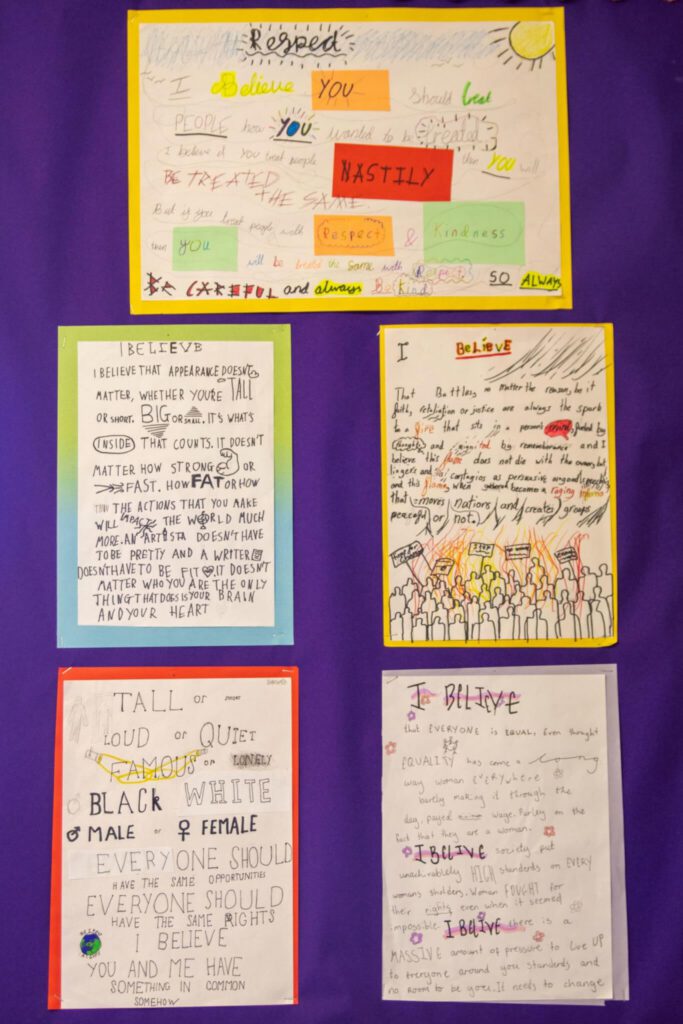 Respect
I Believe YOU Should treat
PEOPLE how YOU wanted to be treated
I believe if you treat people NASTILY then YOU will
BE TREATED THE SAME.
But if you treat people with Respect & Kindness
then you
will be treated the same with Respect SO ALWAYS
BE CAREFUL and always Be Kind
I BELIEVE
I BELIEVE THAT APPEARANCE DOESN'T
MATTER, WHETHER YOU'RE TALL
OR SHORT. BIG OR SMALL. IT'S WHAT'S
INSIDE THAT COUNTS. IT DOESN'T
MATTER HOW STRONG OR
FAST. HOW FAT OR HOW
THIN THE ACTIONS THAT YOU MAKE
WILL IMPACT THE WORLD MUCH
MORE. AN ARTISTA DOESN'T HAVE
TO BE PRETTY AND A WRITER
DOESN'T HAVE TO BE FIT IT DOESN'T
MATTER WHO YOU ARE THE ONLY
THING THAT DOES IS YOUR BRAIN
AND YOUR HEART
I BeLiEVE
That Battles no matter the reason, be it
faith, retaliation or justice are always the spark
to a fire that sits in a person's mind, fueled by
thoughts and ignited by rememberance and I
believe this flame does not die with the owner, but
lingers and is contagios as persuasive or good speeches
and this flame, when gathered become a raging inferno
that moves nations and creates groups
peaceful or not.
STOP
TALL or SHORT
LOUD or QUIET
FAMOUS or LONELY
BLACK WHITE
♂ MALE or ♀ FEMALE
EVERYONE SHOULD
HAVE THE SAME OPPORTUNITIES
EVERYONE SHOULD
HAVE THE SAME RIGHTS
I BELIEVE
YOU AND ME HAVE
SOMETHING IN COMMON
SOMEHOW
I BELIEVE
that EVERYONE is EQUAL, Even thought
EQUALITY has come a long
way woman EVERYwhere
barly making it through the
day, payed wage. Purley on the
fact that they are a woman.
I BELIVE society put
unachivablely HIGH standerds on EVERY
womans sholders. Woman FOUGHT for
their rights even when it seemed
impossible. I BELIVE there is a
MASSIVE amount of pressure to live UP
to everyone around you standerds and
no room to be you. It needs to change